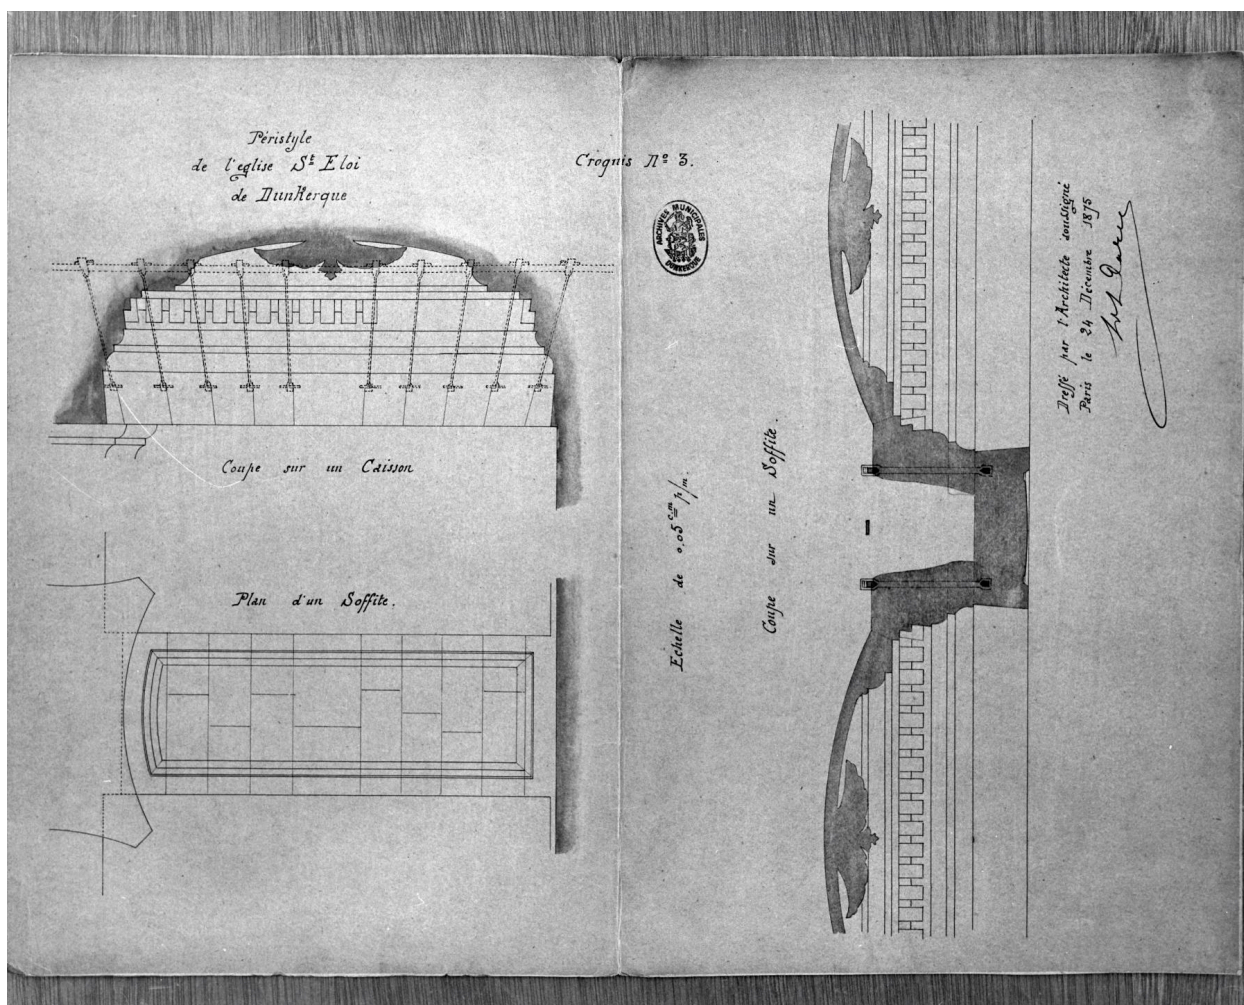 Péristyle
de l'eglise St Eloi
de Dunkerque
Croquis No 3.
ARCHIVES MUNICIPALES
DUNKERQUE
Coupe sur un Caisson
Plan d'un Soffite.
Echelle de 0,05c.m p/m
Coupe sur un Soffite.
Dressé par l'Architecte soussigné
Paris le 24 Décembre 1875